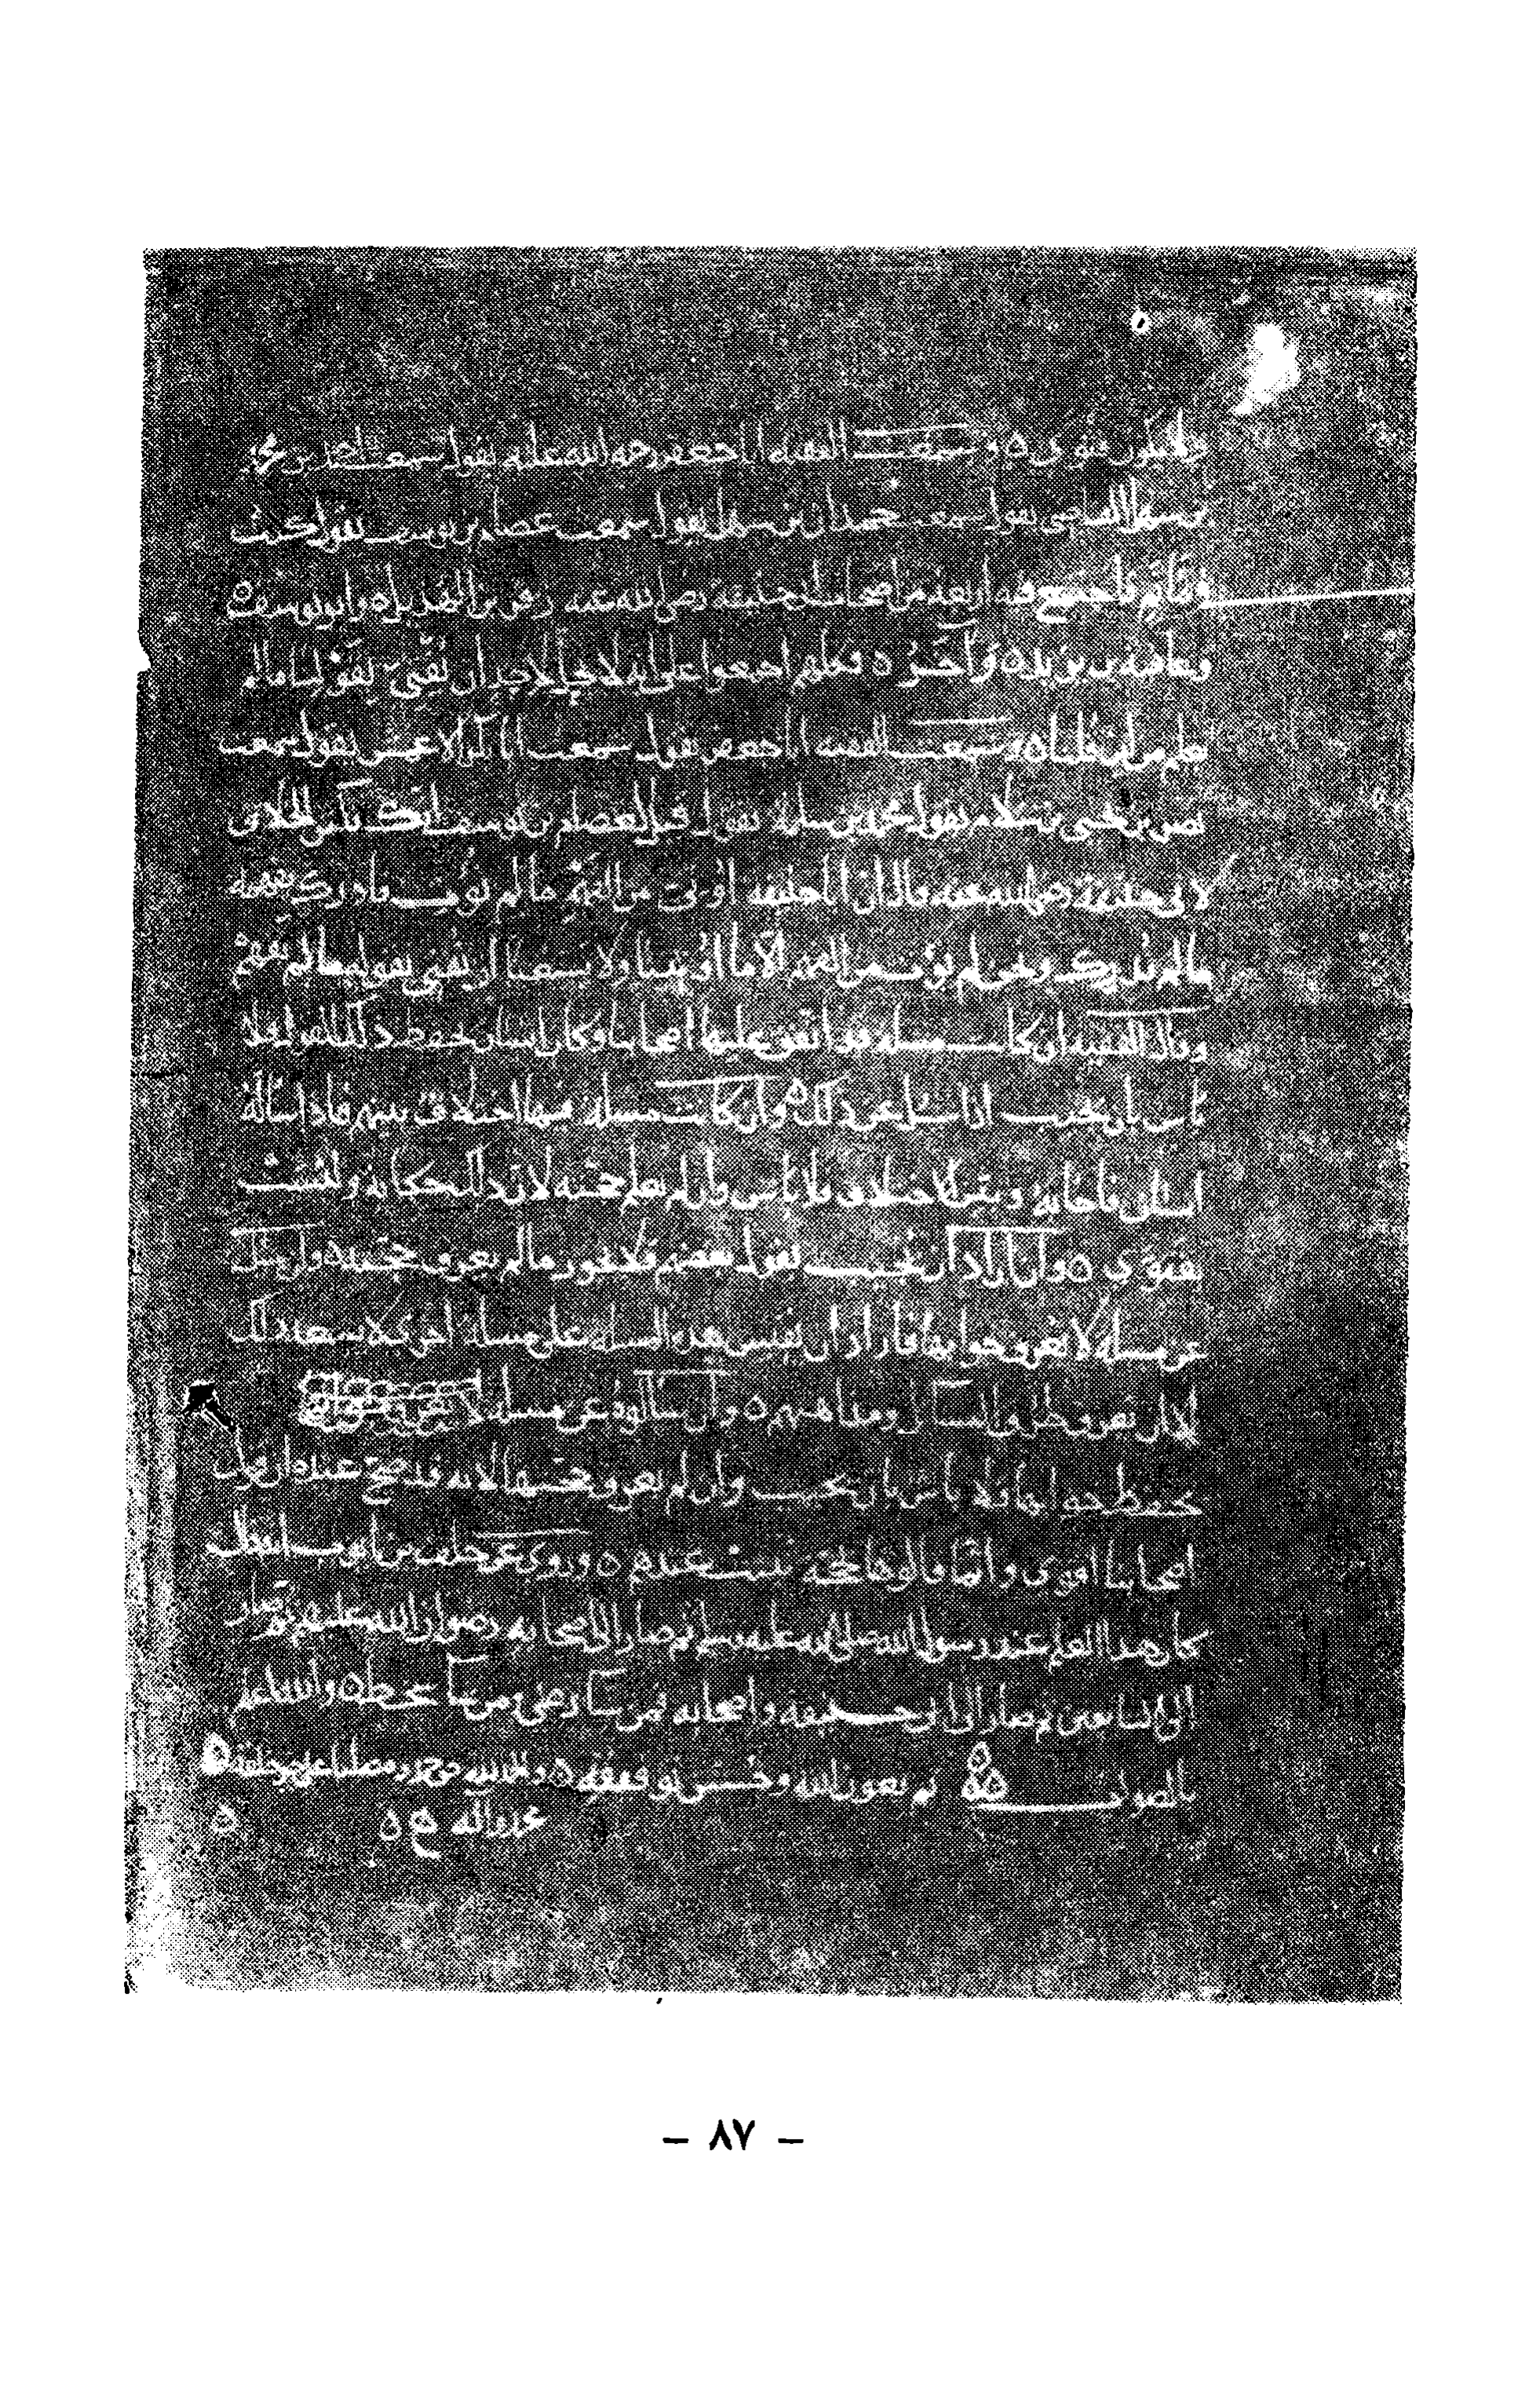 ولا يكون فتوى ٥ وسمعت الفقيه ابا جعفر رحمة الله عليه يقول سمعت احمد بن محمد
بن سهل القاضي يقول سمعت حمدان بن سهل يقول سمعت عصام بن يوسف يقول كنت
في مأتم فاجتمع فيه اربعة من اصحاب ابي حنيفة رضي الله عنه زفر بن الهذيل ٥ وابو يوسف ٥
وعافية بن يزيد ٥ وآخر ٥ فكلهم اجمعوا على انه لا يحل لاحد ان يفتي بقولنا ما لم
يعلم من اين قلنا ٥ وسمعت الفقيه ابا جعفر يقول سمعت ابا بكر الاعمش يقول سمعت
نصر بن يحيى بن سلام يقول محمد بن سلمة يقول قيل لعصام بن يوسف انك تكثر الخلاف
لابي حنيفة رضي الله عنه قال ان ابا حنيفة اوتي من الفهم ما لم نؤت فادرك بفهمه
ما لم ندرك ونحن لم نؤت من الفهم الا ما اوتينا ولا يسعنا ان نفتي بقوله ما لم نفهم
وقال الفقيه ان كانت مسلة قد اتفق عليها اصحابنا وكان انسان يحفظ ذلك القول فلا
باس بان يجيب اذا سئل عن ذلك ٥ وان كانت مسلة فيها اختلاف بينهم فاذا ساله
انسان فاجابه وبين الاختلاف فلا باس وان لم يعلم حجته لان ذلك حكاية وليست
بفتوى ٥ وان اراد ان يجيب بقول بعضهم فلا يجوز ما لم يعرف حجته ٥ وان سئل
عن مسلة لا يعرف جوابها فاراد ان يقيس هذه المسلة على مسلة اخرى لا يسعه ذلك
الا ان يعرف طرق المسائل ومذاهبهم ٥ وان سالوه عن مسلة
يحفظ جوابها فلا باس بان يجيب وان لم يعرف حجتها لانه قد صح عنده ان قول
اصحابنا اقوى وانما قالوها لحجة ثبتت عندهم ٥ وروي عن خلف بن ايوب انه قال
كان هذا العلم عند رسول الله صلى الله عليه وسلم ثم صار الى الصحابة رضوان الله عليهم ثم صار
الى التابعين ثم صار الى ابي حنيفة واصحابه فمن شا رضي ومن شا سخط ٥ والله اعلم
بالصواب ٥ ثم بعون الله وحسن توفيقه ٥ والحمد لله
محمد واله ٥
- ٨٧ -